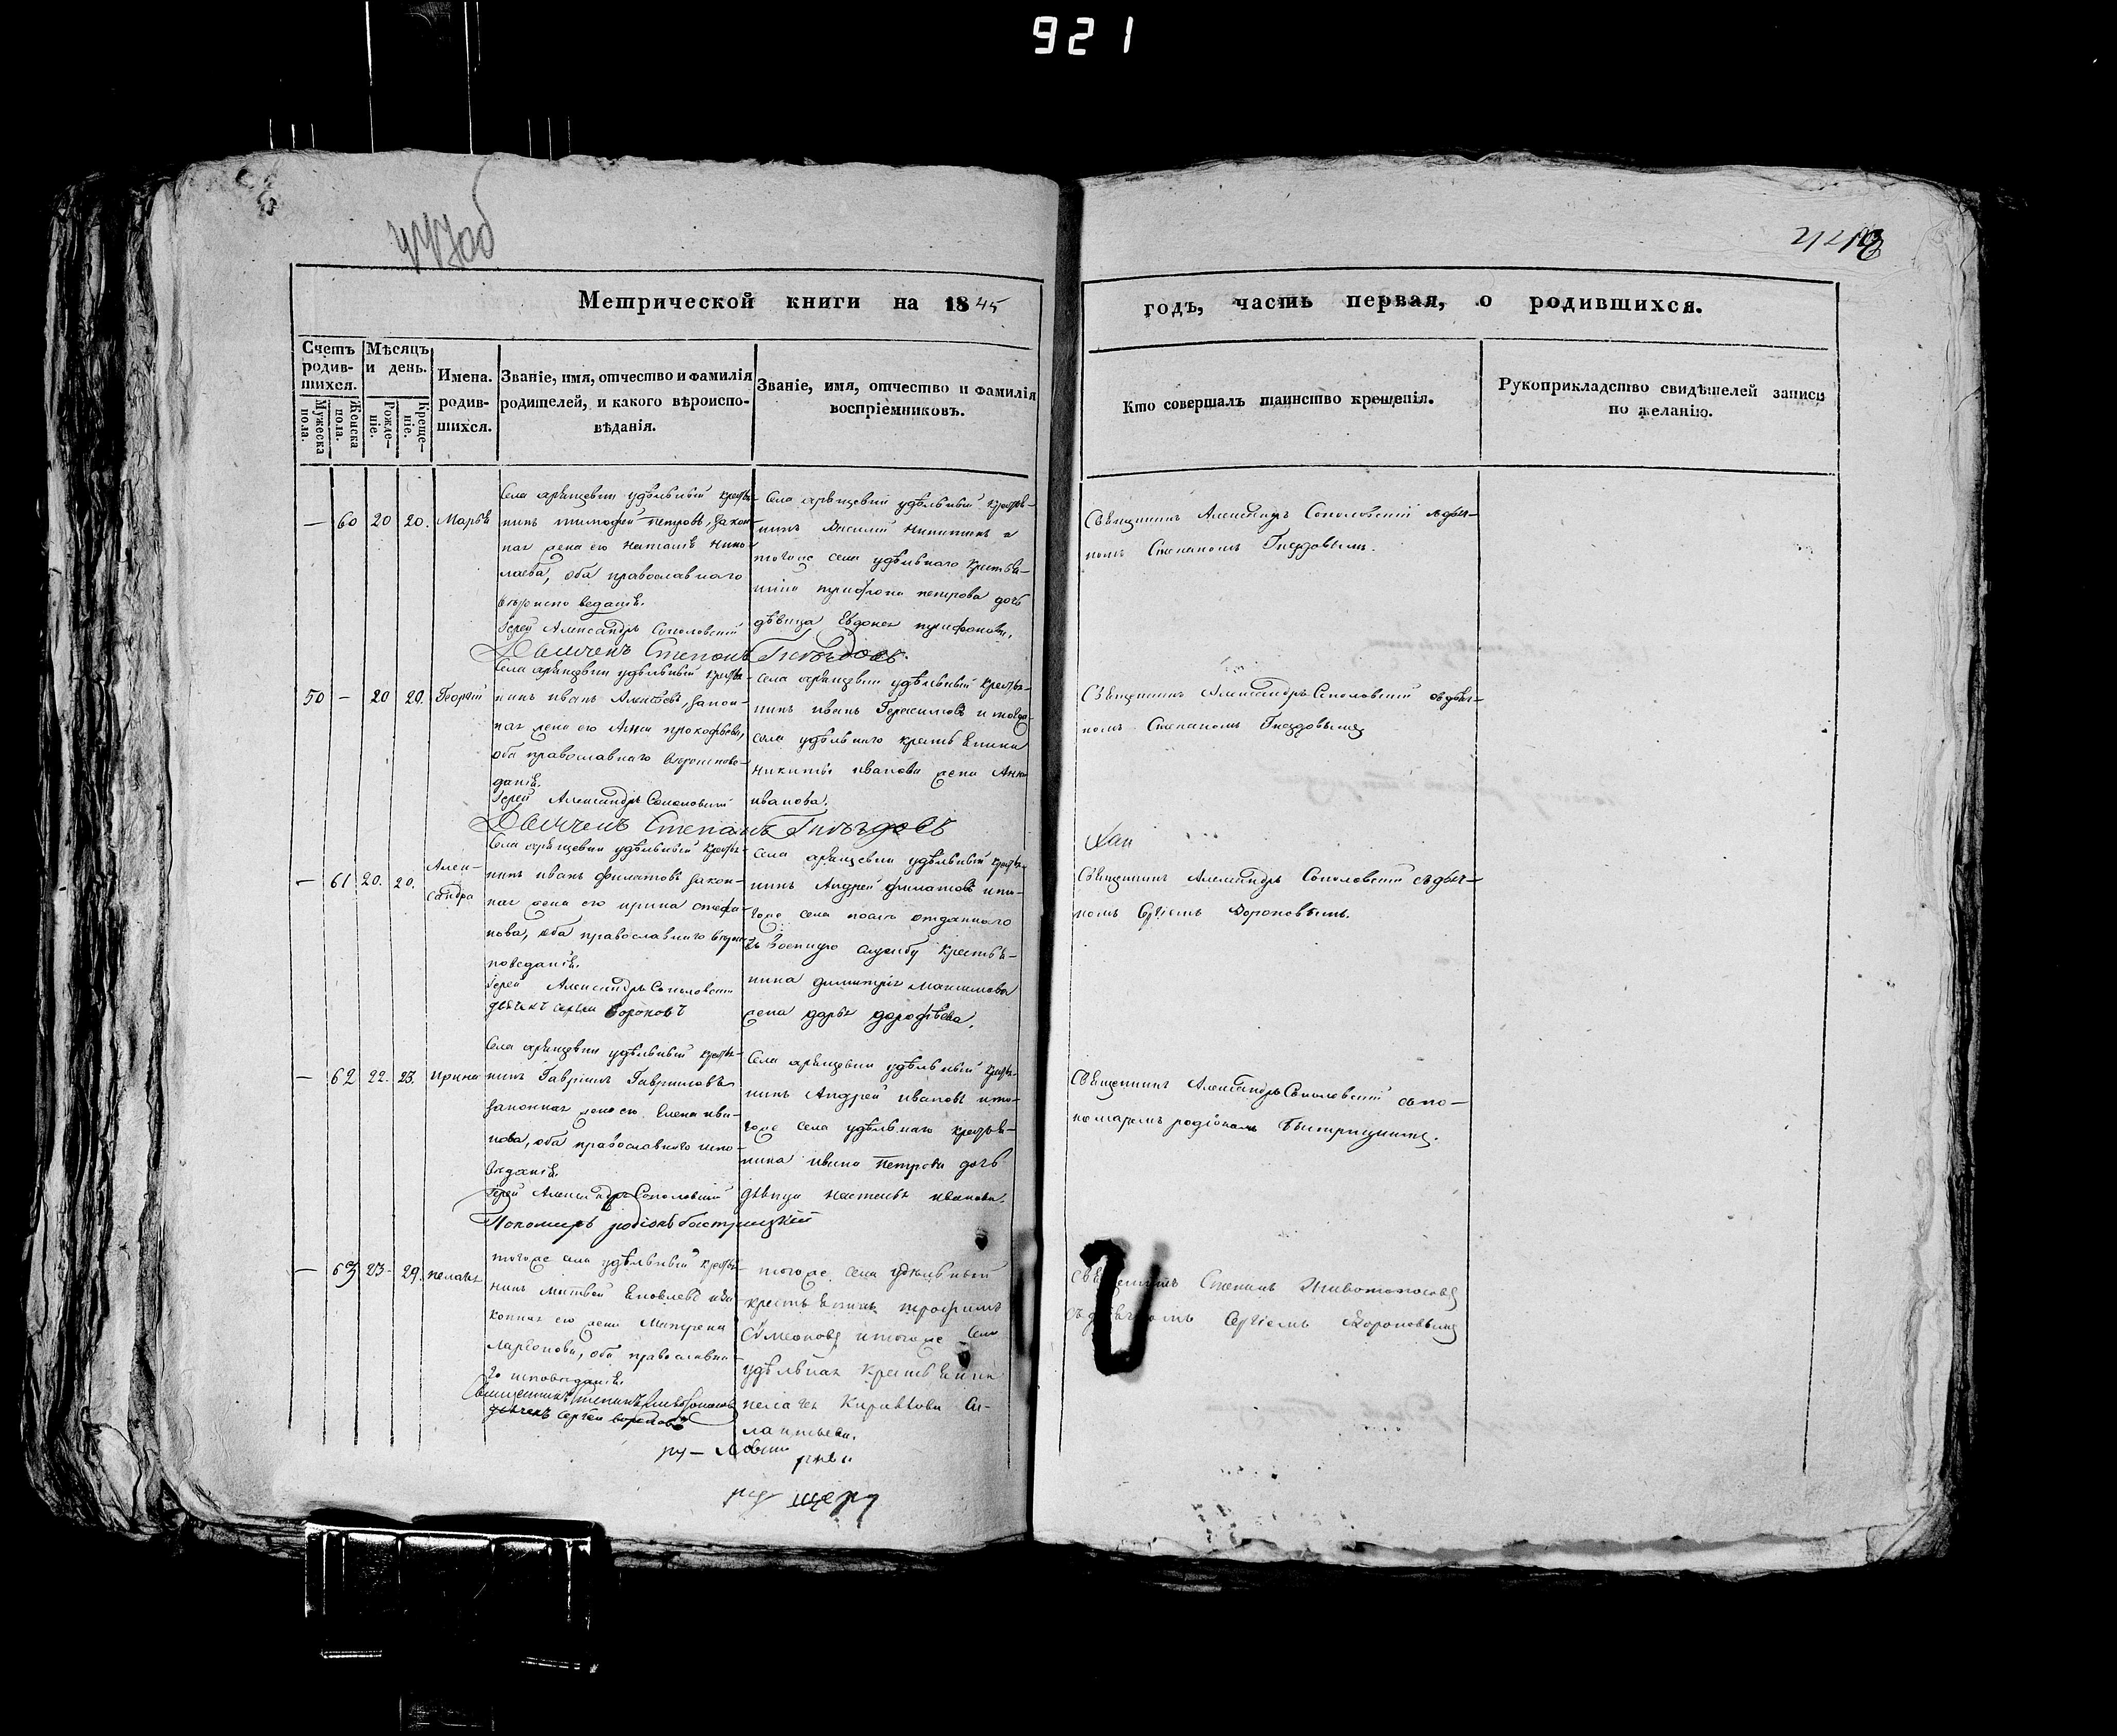 921
447об
Метрической книги на 1845
годъ, часть первая, о родившихся.
Счетъ родив-
шихся.
Мѣсяцъ
и день.
Мужеска пола.
Женска пола.
Рожде-
ніе.
Креще-
ніе.
Имена.
родив-
шихся.
Званіе, имя, отчество и фамилія
родителей, и какого вѣроиспо-
вѣданія.
Званіе, имя, отчество и фамилія
воспріемниковъ.
Кто совершалъ таинство крещенія.
Рукоприкладство свидѣтелей записи
по желанію.
— 60 20 20. Марья
Села удѣльный крестья-
нинъ тимофей петровъ, закон-
ная жена его наталья нико-
лаева, оба православнаго
вѣроисповеданія.
Іерей Александръ Соколовскій
Дьячекъ Степанъ Гнѣздовъ.
Села удѣльный крестья-
нинъ Василій Никитинъ и
тогоже села удѣльнаго крестья-
нина трифона петрова дочь
дѣвица Евдокея трифонова.
Священникъ Александръ Соколовскій съ дьяч-
комъ Степаномъ Гнездовымъ.
50 — 20 20. Георгій
Села удѣльный крестья-
нинъ иванъ Алексѣевъ, закон-
ная жена его Анна прокофьева,
оба православнаго вѣроиспове-
данія.
Іерей Александръ Соколовскій
Дьячекъ Степанъ Гнѣздовъ
Села удѣльный крестья-
нинъ иванъ Герасимовъ и тогоже
села удѣльнаго крестьянина
никиты иванова жена Анна
иванова.
Священникъ Александръ Соколовскій съ дьяч-
комъ Степаномъ Гнездовымъ
— 61 20. 20. Алек-
сандра
Села удѣльный крестья-
нинъ иванъ филатовъ закон-
ная жена его ирина стефа-
нова, оба православнаго вѣроис-
поведанія.
Іерей Александръ Соколовскій
дьячекъ сергей Вороновъ
Села удѣльный крестья-
нинъ Андрей филатовъ и то-
гоже села отданнаго
въ военную службу крестья-
нина димитрія Максимова
жена дарья дорофѣева.
Священникъ Александръ Соколовскій съ дьяч-
комъ Сергіемъ Вороновымъ.
— 62 22. 23. ирина
Села удѣльный крестья-
нинъ Гавріилъ Гавриловъ
законная жена его Елена ива-
нова, оба православнаго испо-
вѣданія.
Іерей Александръ Соколовскій
Пономарь родіонъ быстрицкій
Села удѣльный крестья-
нинъ Андрей ивановъ и то-
гоже села удѣльнаго крестья-
нина ивана петрова дочь
дѣвица настасья иванова.
Священникъ Александръ Соколовскій съ по-
номаремъ родіономъ Быстрицкимъ.
— 63 23. 29. пелагея
тогоже села удѣльный крестья-
нинъ матвей Яковлевъ и за-
конная его жена Матрена
ларіонова, оба православна-
го исповѣданія.
дьячекъ Сергей вороновъ
тогоже села удѣльный
крестьянинъ трофимъ
Симеоновъ и тогоже села
удѣльная крестьянка
пелагея
Священникъ Степанъ
съ дьячкомъ Сергіемъ Вороновымъ